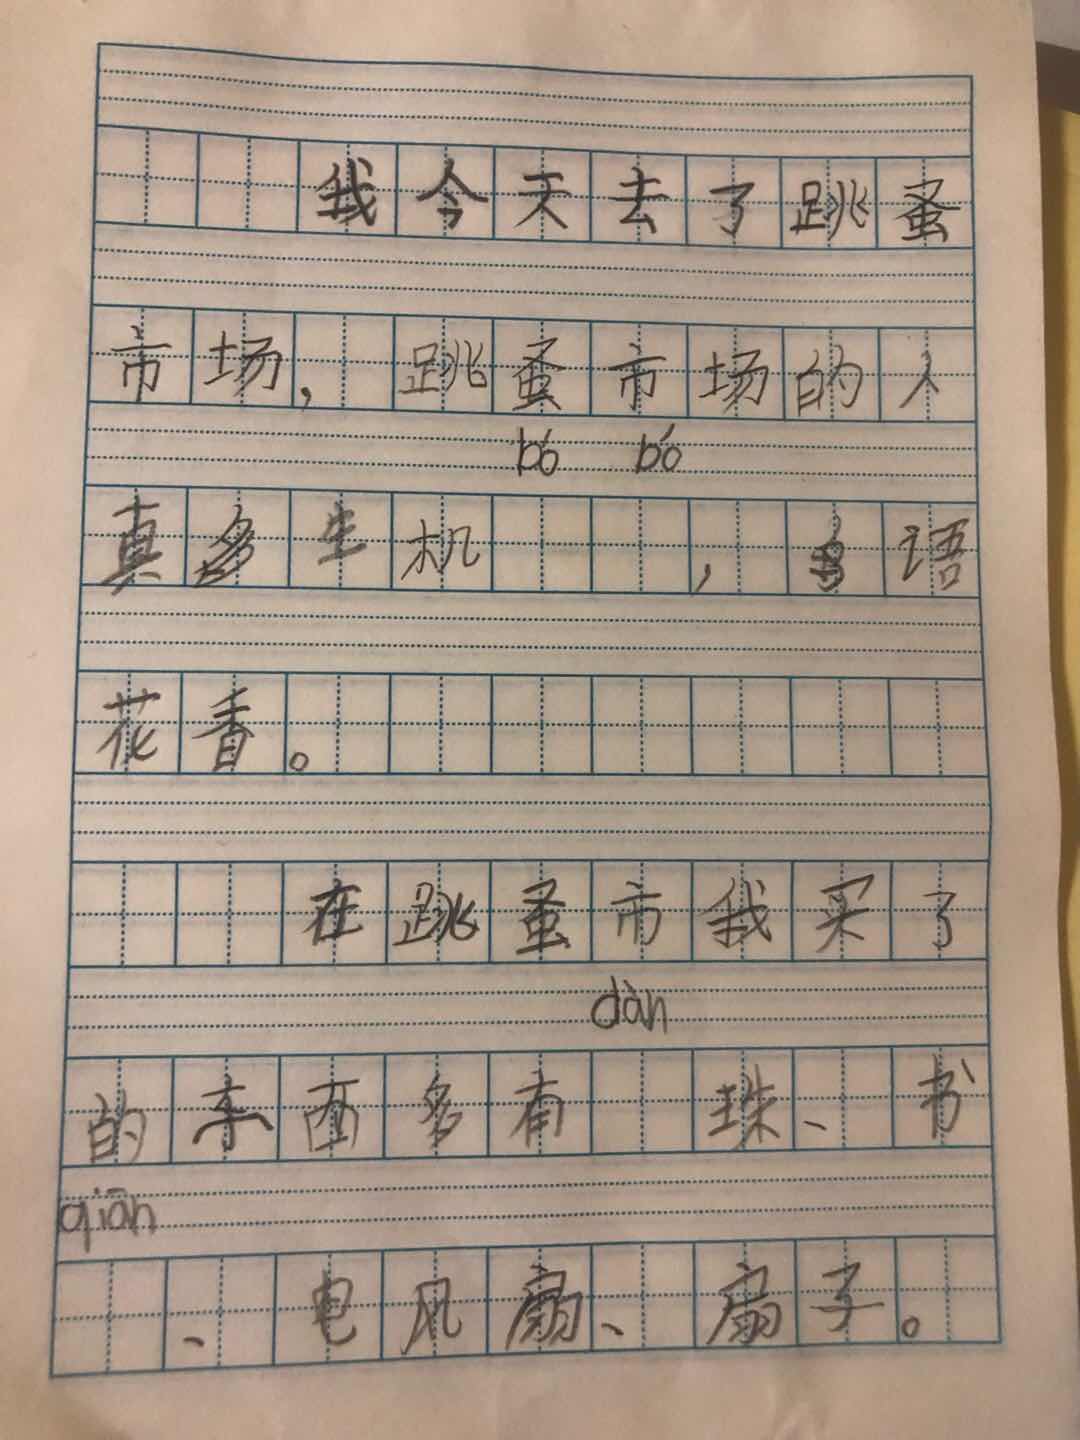 我今天去了跳蚤
市场，跳蚤市场的人
bó bó
真多生机，鸟语
花香。
在跳蚤市我买了
dàn
的东西多有珠、书
qiān
、电风扇、扇子。